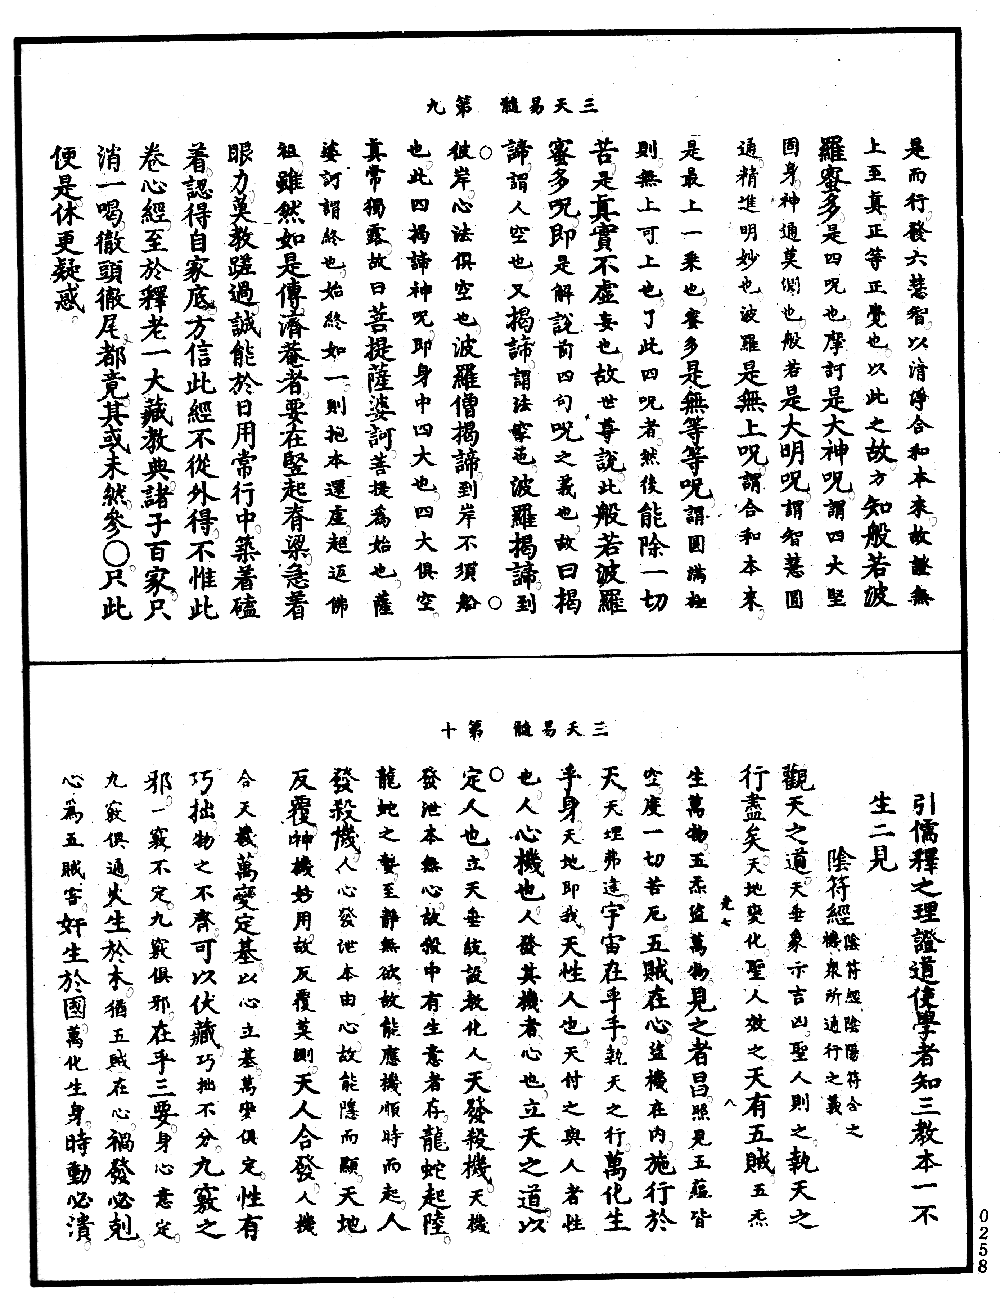 三天易髓 第九
是而行發六慧智以清淨合和本來故證無
上至真正等正覺也以此之故方知般若波
羅蜜多是四呪也摩訶是大神呪謂四大堅
固身神通莫測也般若是大明呪謂智慧圓
通精進明妙也波羅是無上呪謂合和本來
是最上一乘也蜜多是無等等呪謂圓滿極
則無上可上也了此四呪者然後能除一切
苦是真實不虛妄也故世尊說此般若波羅
蜜多呪即是解說前四句呪之義也故曰揭
諦謂人空也又揭諦謂法空也波羅揭諦到
彼岸心法俱空也波羅僧揭諦到岸不須船
也此四揭諦神呪即身中四大也四大俱空
真常獨露故曰菩提薩婆訶菩提為始也薩
婆訶謂終也始終如一則抱本還虛超逅佛
祖雖然如是傳濟菴者要在竪起脊梁急着
眼力莫教蹉過誠能於日用常行中築着磕
着認得自家底方信此經不從外得不惟此
卷心經至於釋老一大藏教典諸子百家只
消一喝徹頭徹尾都竟其或未然參〇只此
便是休更疑惑
三天易髓 第十
引儒釋之理證道使學者知三教本一不
生二見
陰符經陰符經陰陽符合之
機眾所通行之義
觀天之道天垂象示吉凶聖人則之執天之
行盡矣天地變化聖人效之天有五賊五炁
生萬物五炁盜萬物見之者昌照見五蘊皆
空度一切苦厄五賊在心盜機在內施行於
天天理弗違宇宙在乎手執天之行萬化生
乎身天地即我天性人也天付之與人者性
也人心機也人發其機者心也立天之道以
定人也立天垂敎設教化人天發殺機天機
發泄本無心故殺中有生意者存龍蛇起陸
龍蛇之蟄至靜無欲故能應機順時而起人
發殺機人心發泄本由心故能隱而顯天地
反覆神機妙用故反覆莫測天人合發人機
合天機萬變定基以心立基萬變俱定性有
巧拙物之不齊可以伏藏巧拙不分九竅之
邪一竅不定九竅俱邪在乎三要身心意定
九竅俱通火生於木猶五賊在心禍發必剋
心為五賊害奸生於國萬化生身時動必潰
0258